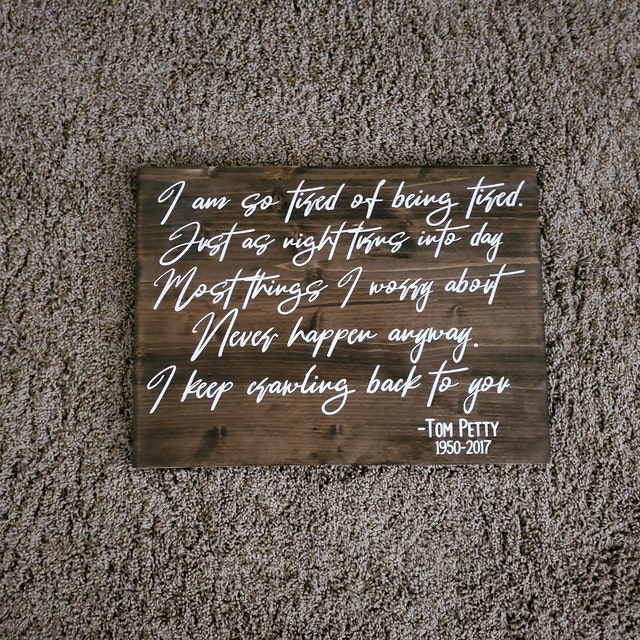 I am so tired of being tired.
Just as night turns into day
Most things I worry about
Never happen anyway.
I keep crawling back to you
-Tom Petty
1950-2017